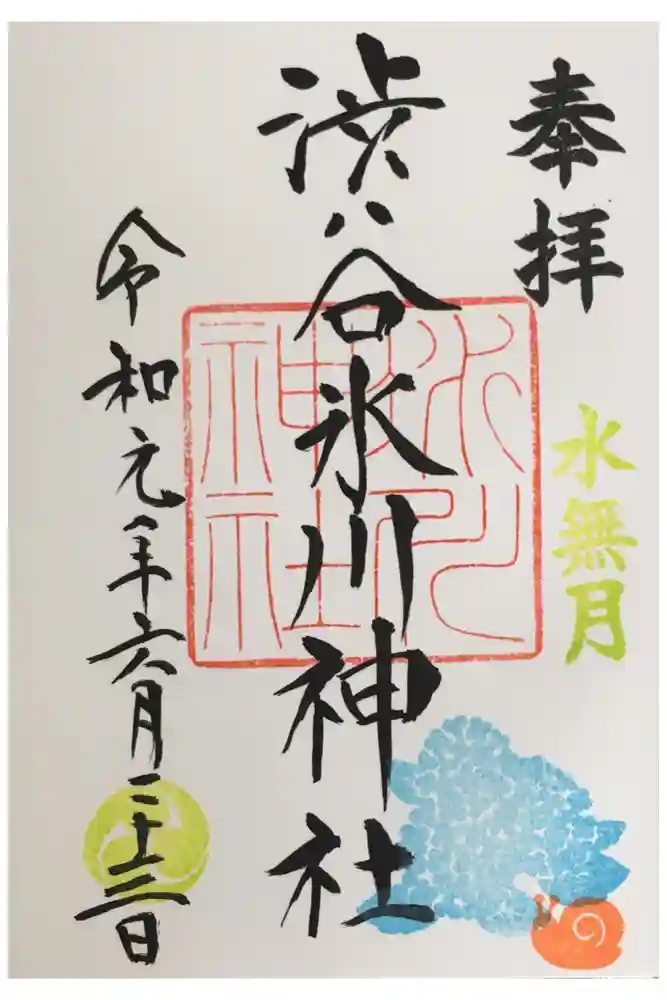 奉拝
水無月
渋谷氷川神社
氷川
神社
令和元年六月二十三日